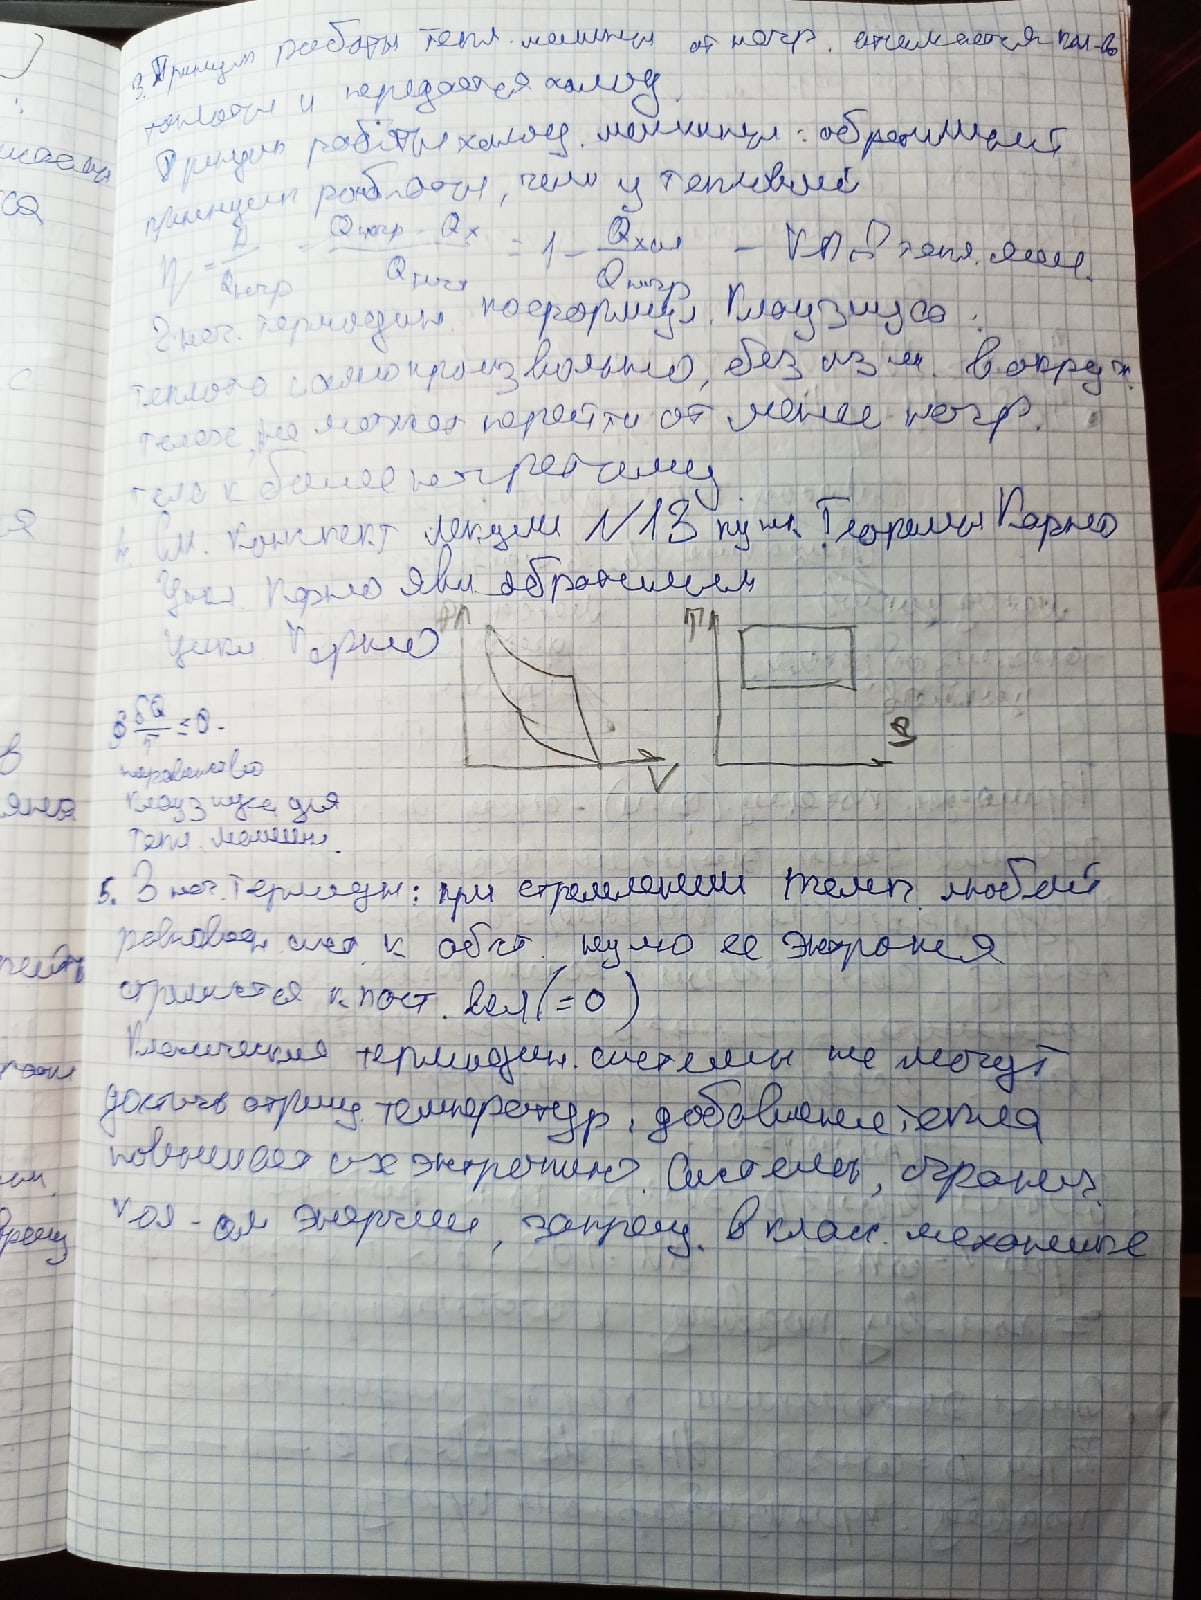 3. Принцип работы тепл. машины от нагр. отнимается кол-во
теплоты и передается холод.
Принцип работы холод. машины: обратный
принцип работы, чем у тепловой
η = A/Qнагр = Qнагр - Qх/Qнагр = 1 - Qхол/Qнагр - КПД тепл. маш.
2 нач. термодин. по формул. Клаузиуса:
теплота самопроизвольно, без изм. в окруж.
телах, не может перейти от менее нагр.
тела к более нагретому
4. См. конспект лекции N13 пункт Теоремы Карно
Цикл Карно явл. обратимым
Цикл Карно
T
V
S
∮ δQ/T ≤ 0 -
неравенство
Клаузиуса для
тепл. машин.
5. 3 нач. термодин: при стремлении темп. любой
равновесн сист. к абст. нулю ее энтропия
стримится к пост. вел (=0)
термодин. системы не могут
достичь отриц. температур, добавление тепла
повышает их энтропию. Системы, огранич.
кол-ом энергии, запрещ. в клас. механике